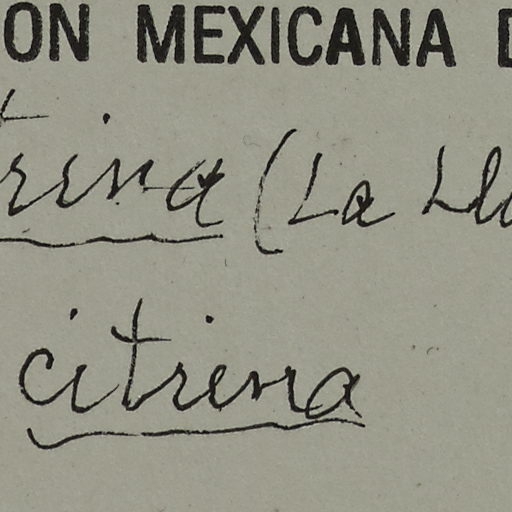 ON MEXICANA D
trina (La Lla
citrina